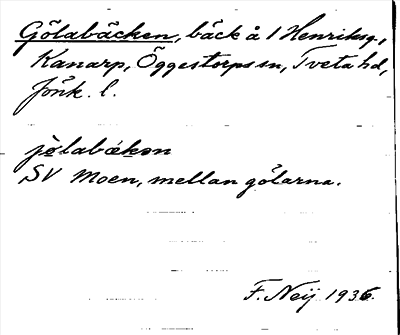 Gölabäcken, bäck å 1 Henriksg.,
Kanarp, Öggestorps sn, Tveta hd,
Jönk. l.
jölabäkən
SV Moen, mellan gölarna.
F. Neij 1936.